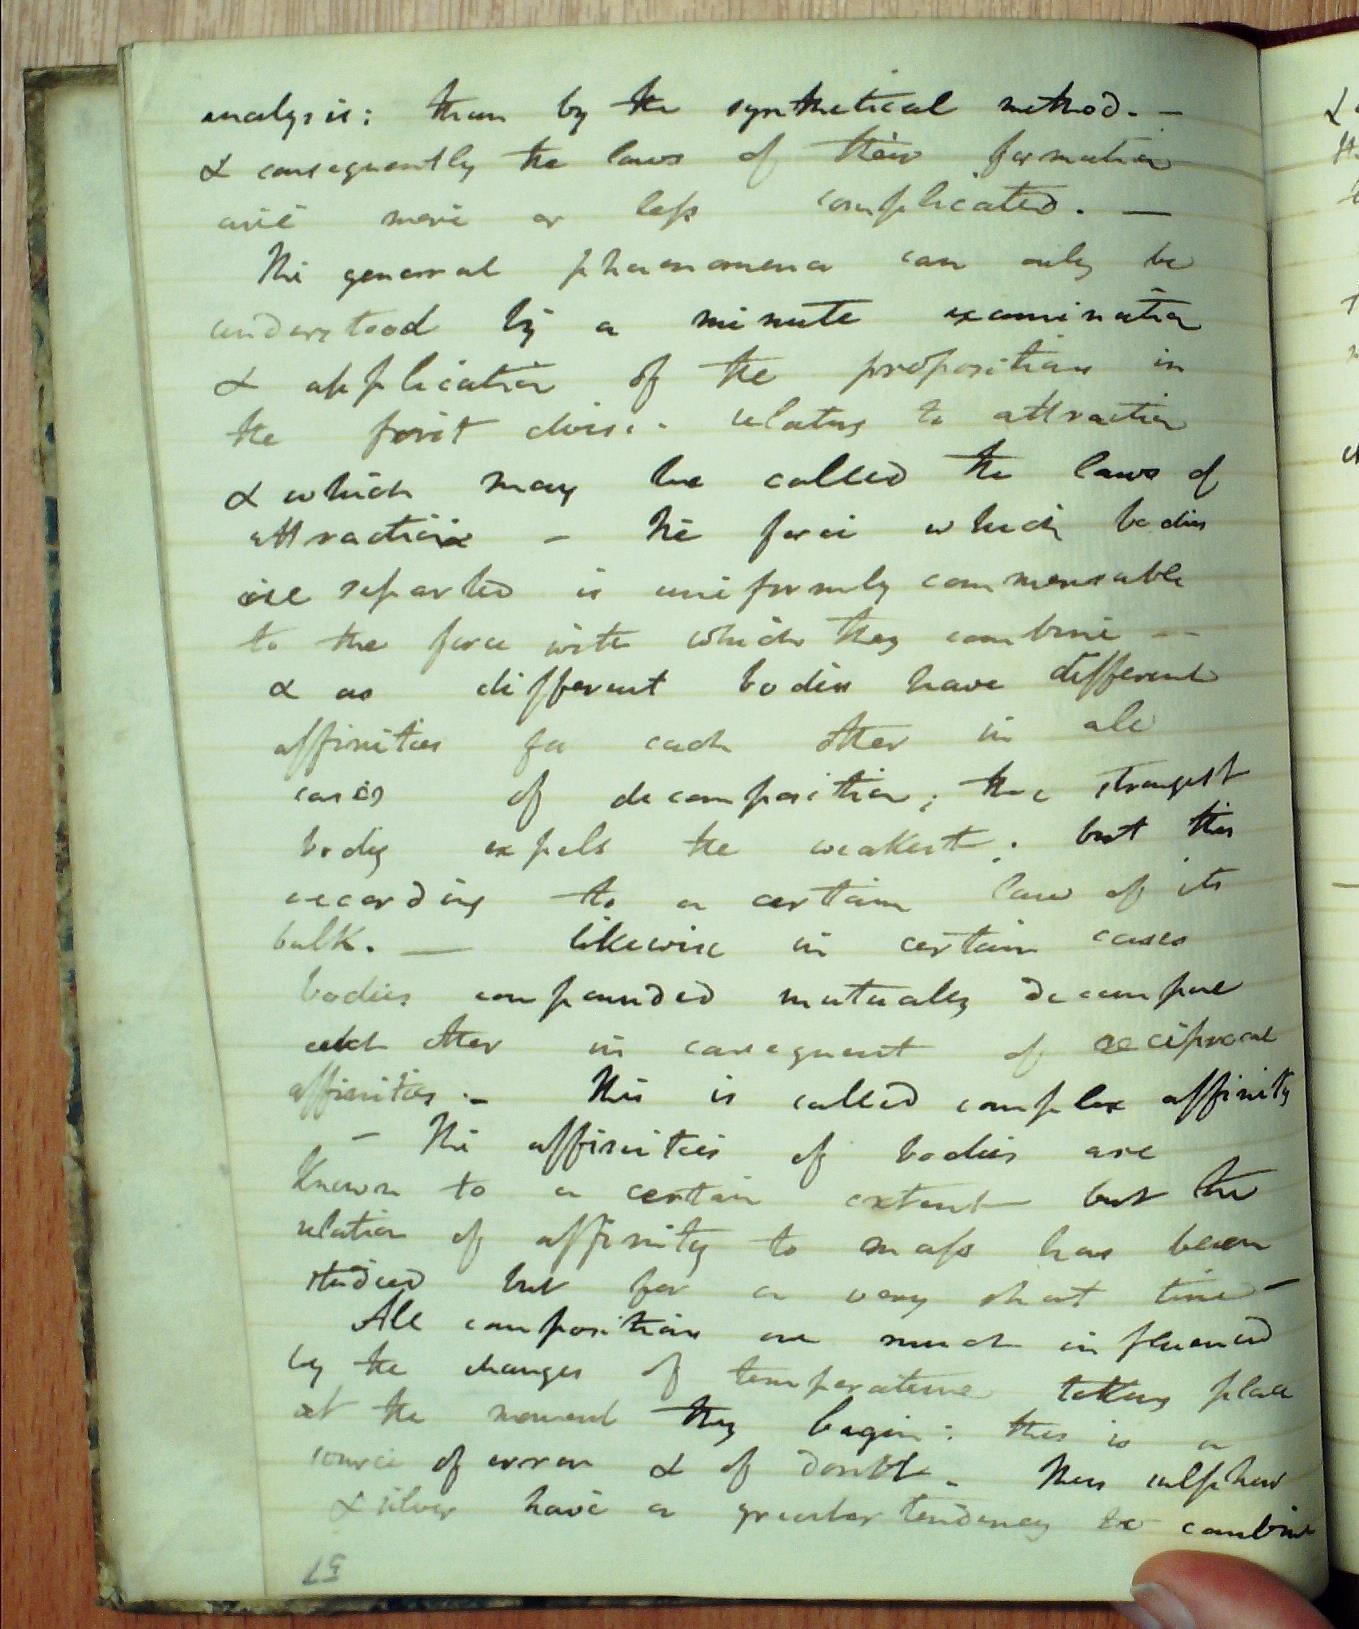 analysis: than by the synthetical method. —
& consequently the laws of their formation
are more or less complicated. —
The general phaenomena can only be
understood by a minute examination
& application of the propositions in
the first divis:. relating to attraction
& which may be called the laws of
attraction – The force which bodies
are separted is uniformly commensuable
to the force with which they combine —
& as different bodies have different
affinities for each other in all
cases of decomposition; the strongest
body expels the weakest. but this
according to a certain law of its
bulk. — likewise in certain cases
bodies compounded mutually decompose
each other in consequent of reciprocal
affinities. – This is called complex affinity
– The affinities of bodies are
Known to a certain extent but the
relation of affinity to mass has been
studied but for a very short time –
All compositions are much influenced
by the changes of temperature taking place
at the moment they begin: this is a
source of error & of doubt. Thus sulphur
& silver have a greater tendency to combine
57